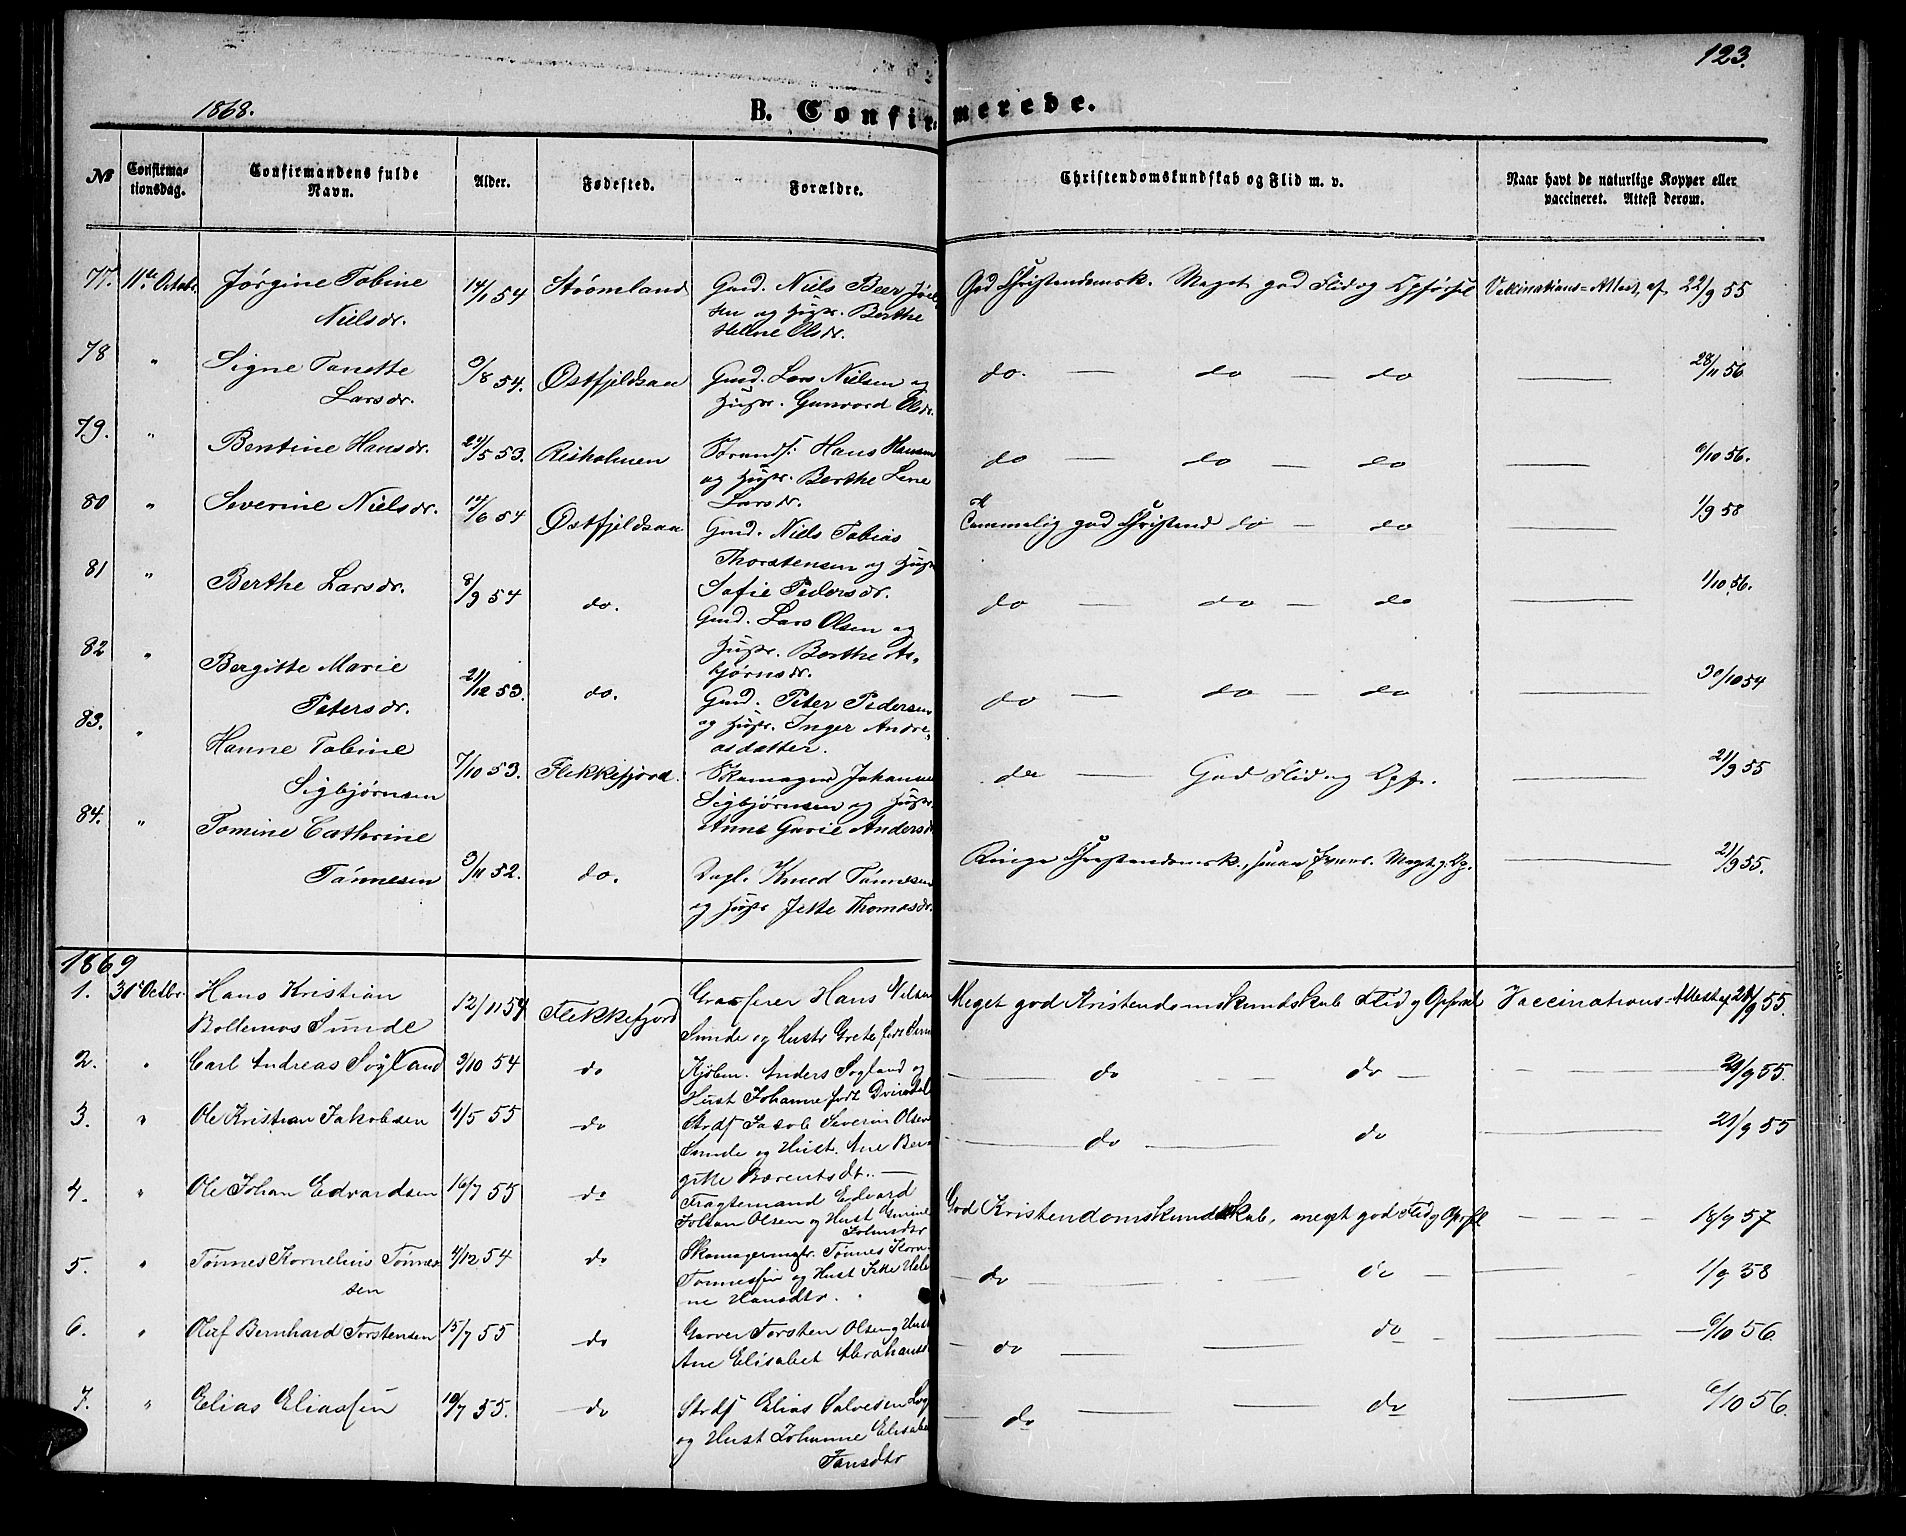 123.
1868.
B. Confirmerede.
№ Confirma-tionsdag. Confirmandens fulde Navn. Alder. Fødested. Forældre. Christendomskundskab og Flid m. v. Naar havt de naturlige Kopper eller vaccineret. Attest derom.
77. 11te Octob. Jørgine Tobine 14/1 54 Strømland Gmd. Niels Beer God Christendomsk. Meget god Flid og Opførsel Vakcinations=Attest af 22/9 55
Nielsdr. og Hustr. Berthe
Helene Olsdr.
78 " Signe Tanette 9/8 54. Østfjeldsaa Gmd. Lars Nielsen og do. — do — do — 28/11 56
Larsdr. Hustr. Gunvord Olsdr.
79. " Bentine Hansdr. 24/5 53. Risholmen Strands. Hans Hansen do — do — do — 6/10 56.
og Hustr. Berthe Lene
Larsdr.
80 " Severine Nielsdr. 14/6 54 Østfjeldsaa Gmd. Niels Tobias Temmelig god Christend do — do — 1/9 58
Thorstensen og Hustr
Sofie Pedersdr.
81 " Berthe Larsdr. 8/9 54 do. Gmd. Lars Olsen og do — do — do — 1/10 56.
Hustr. Berthe As-
bjørnsdr.
82 " Bergitte Marie 21/12 53. do. Gmd. Peter Pedersen do — do — do — 30/10 54
Petersdr. og Hustr. Inger Andre-
asdatter.
83. " Hanne Tobine 7/10 53. Flekkefjord. Skomager Johannes do — God Flid og Opf. — 21/9 55
Sigbjørnsen Sigbjørnsen og Hustr.
Anne Gurie Andersdr
84. " Tomine Cathrine 3/11 52. do. Dagl. Knud Tønnesen Ringe Christendomsk., smaa Evner. Meget g. Op. — 21/9 55.
Tønnesen og Hustr Jette Thomasdr.
1869
1. 3die Octbr. Hans Kristian 12/11 54 Flekkefjord Hans Meget god Kristendomskundskab Flid og Opførsel Vaccinations-Attest af 21/9 55.
Bollemos Sunde Sunde og Hustr Grete født
2. " Carl Andreas Søyland 9/10 54 do Kjøbm. Anders Søyland og — do — do — 21/9 55.
Hust Johanne født
3. " Ole Kristian Jakobsen 4/5 55 do Strds Jacob Severin Olsen — do — do — 21/9 55
Sunde og Hust. Ane Ber-
gitte Barentsdt. —
4. " Ole Johan Edvardsen 16/7 55 do Fragtemand Edvard God Kristendomskundskab, meget god Flid og Opfsl — 18/9 57
Johan Olsen og Hust
5. " Tønnes Kornelius Tønnes- 4/12 54 do Skomagermstr. Tønnes Korn- — do — do — 1/9 58
sen Tønnessen og Hust
ne Hansdtr.
6. " Olaf Bernhard Torstensen 15/7 55 do Garver Torsten Olsen og Hust do — do — 6/10 56
Ane Elisabet Abrahamsd
7. " Elias Eliassen 10/7 55. do Strds Elias Salvesen — do — do — 6/10 56.
og Hust Johanne Elisabe
Jansdtr